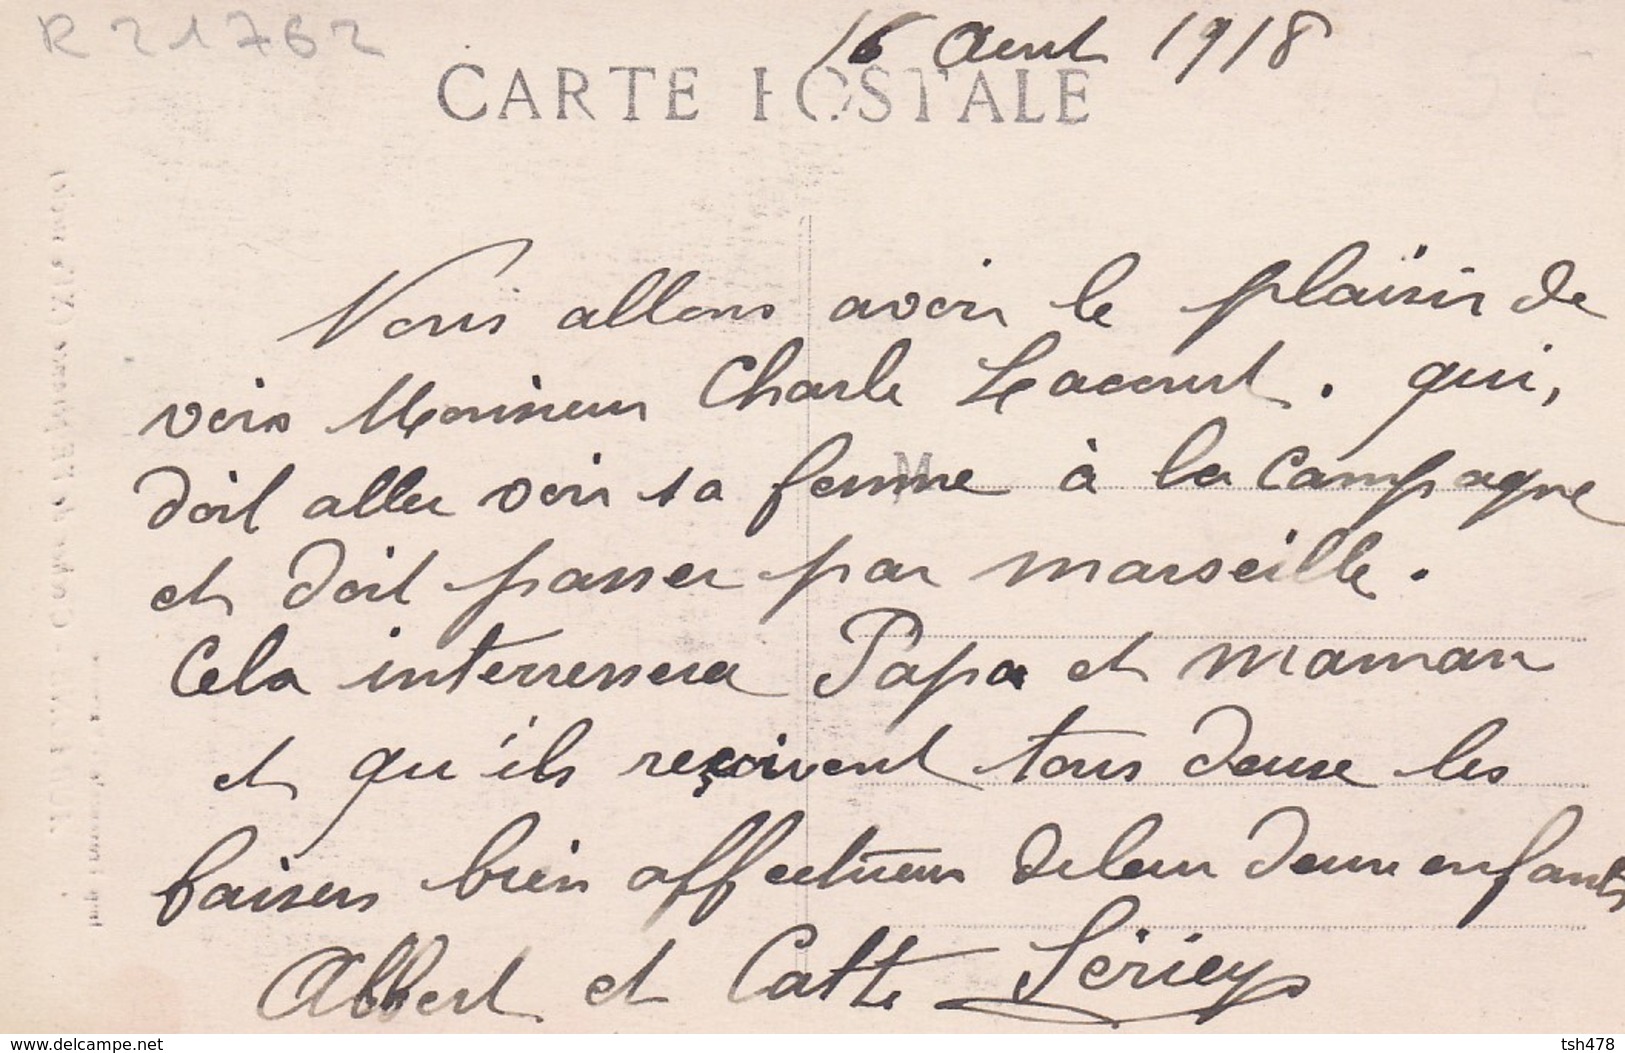 R 21762
16 Aout 1918
CARTE POSTALE
Nous allons avoir le plaisir de
voir Monsieur Charle Lacourt. qui,
doit aller voir sa femme à la Campagne
M
et doit passer par marseille.
Cela interressera Papa et maman
et qu'ils reçoivent tous deux les
baisers bien affectueux de leur deux enfants
Albert et Catte Sérieys
www.delcampe.net
tsh478